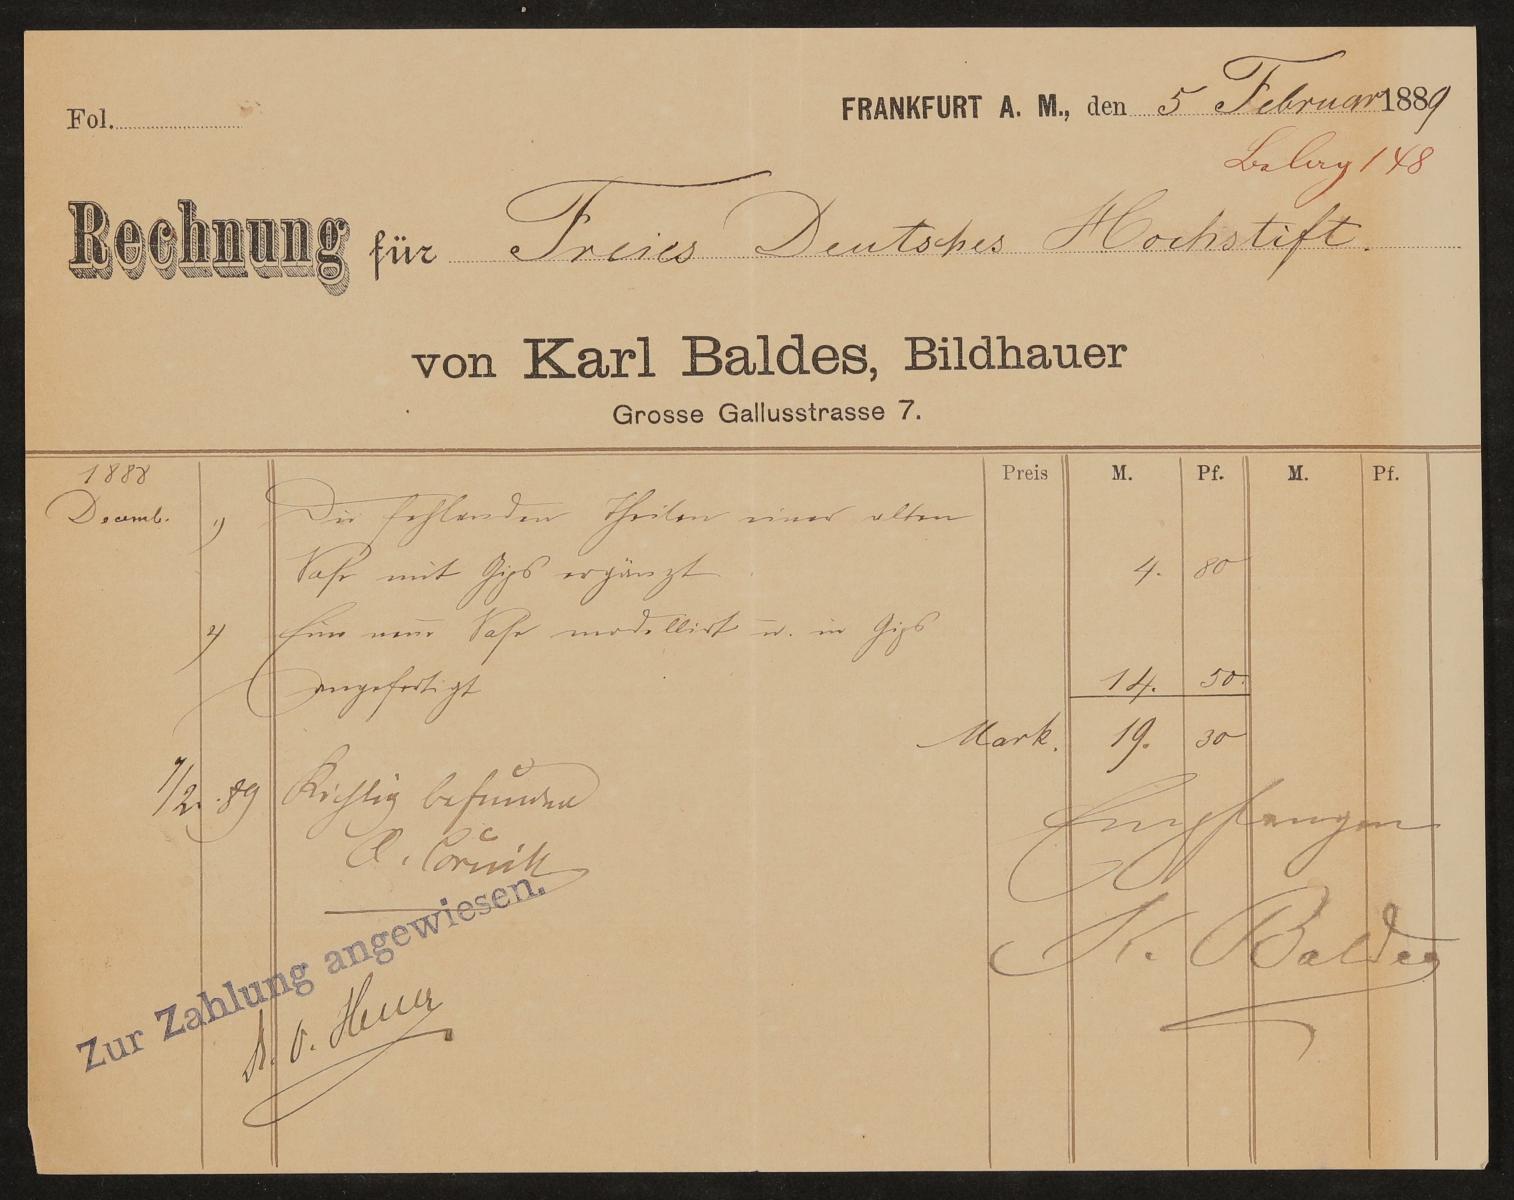 Fol.
FRANKFURT A. M., den 5 Februar 1889
Beleg 148
Rechnung für Freies Deutsches Hochstift.
von Karl Baldes, Bildhauer
Grosse Gallusstrasse 7.
Preis M. Pf. M. Pf.
1888
Decemb. 1) Die fehlenden Theilen einer alten
Vase mit Gips ergänzt 4. 80
2) Eine neue Vase modellirt u. in Gips
angefertigt 14. 50.
Mark. 19. 30
7/2. 89 Richtig befunden
Empfangen
K. Baldes
Zur Zahlung angewiesen.